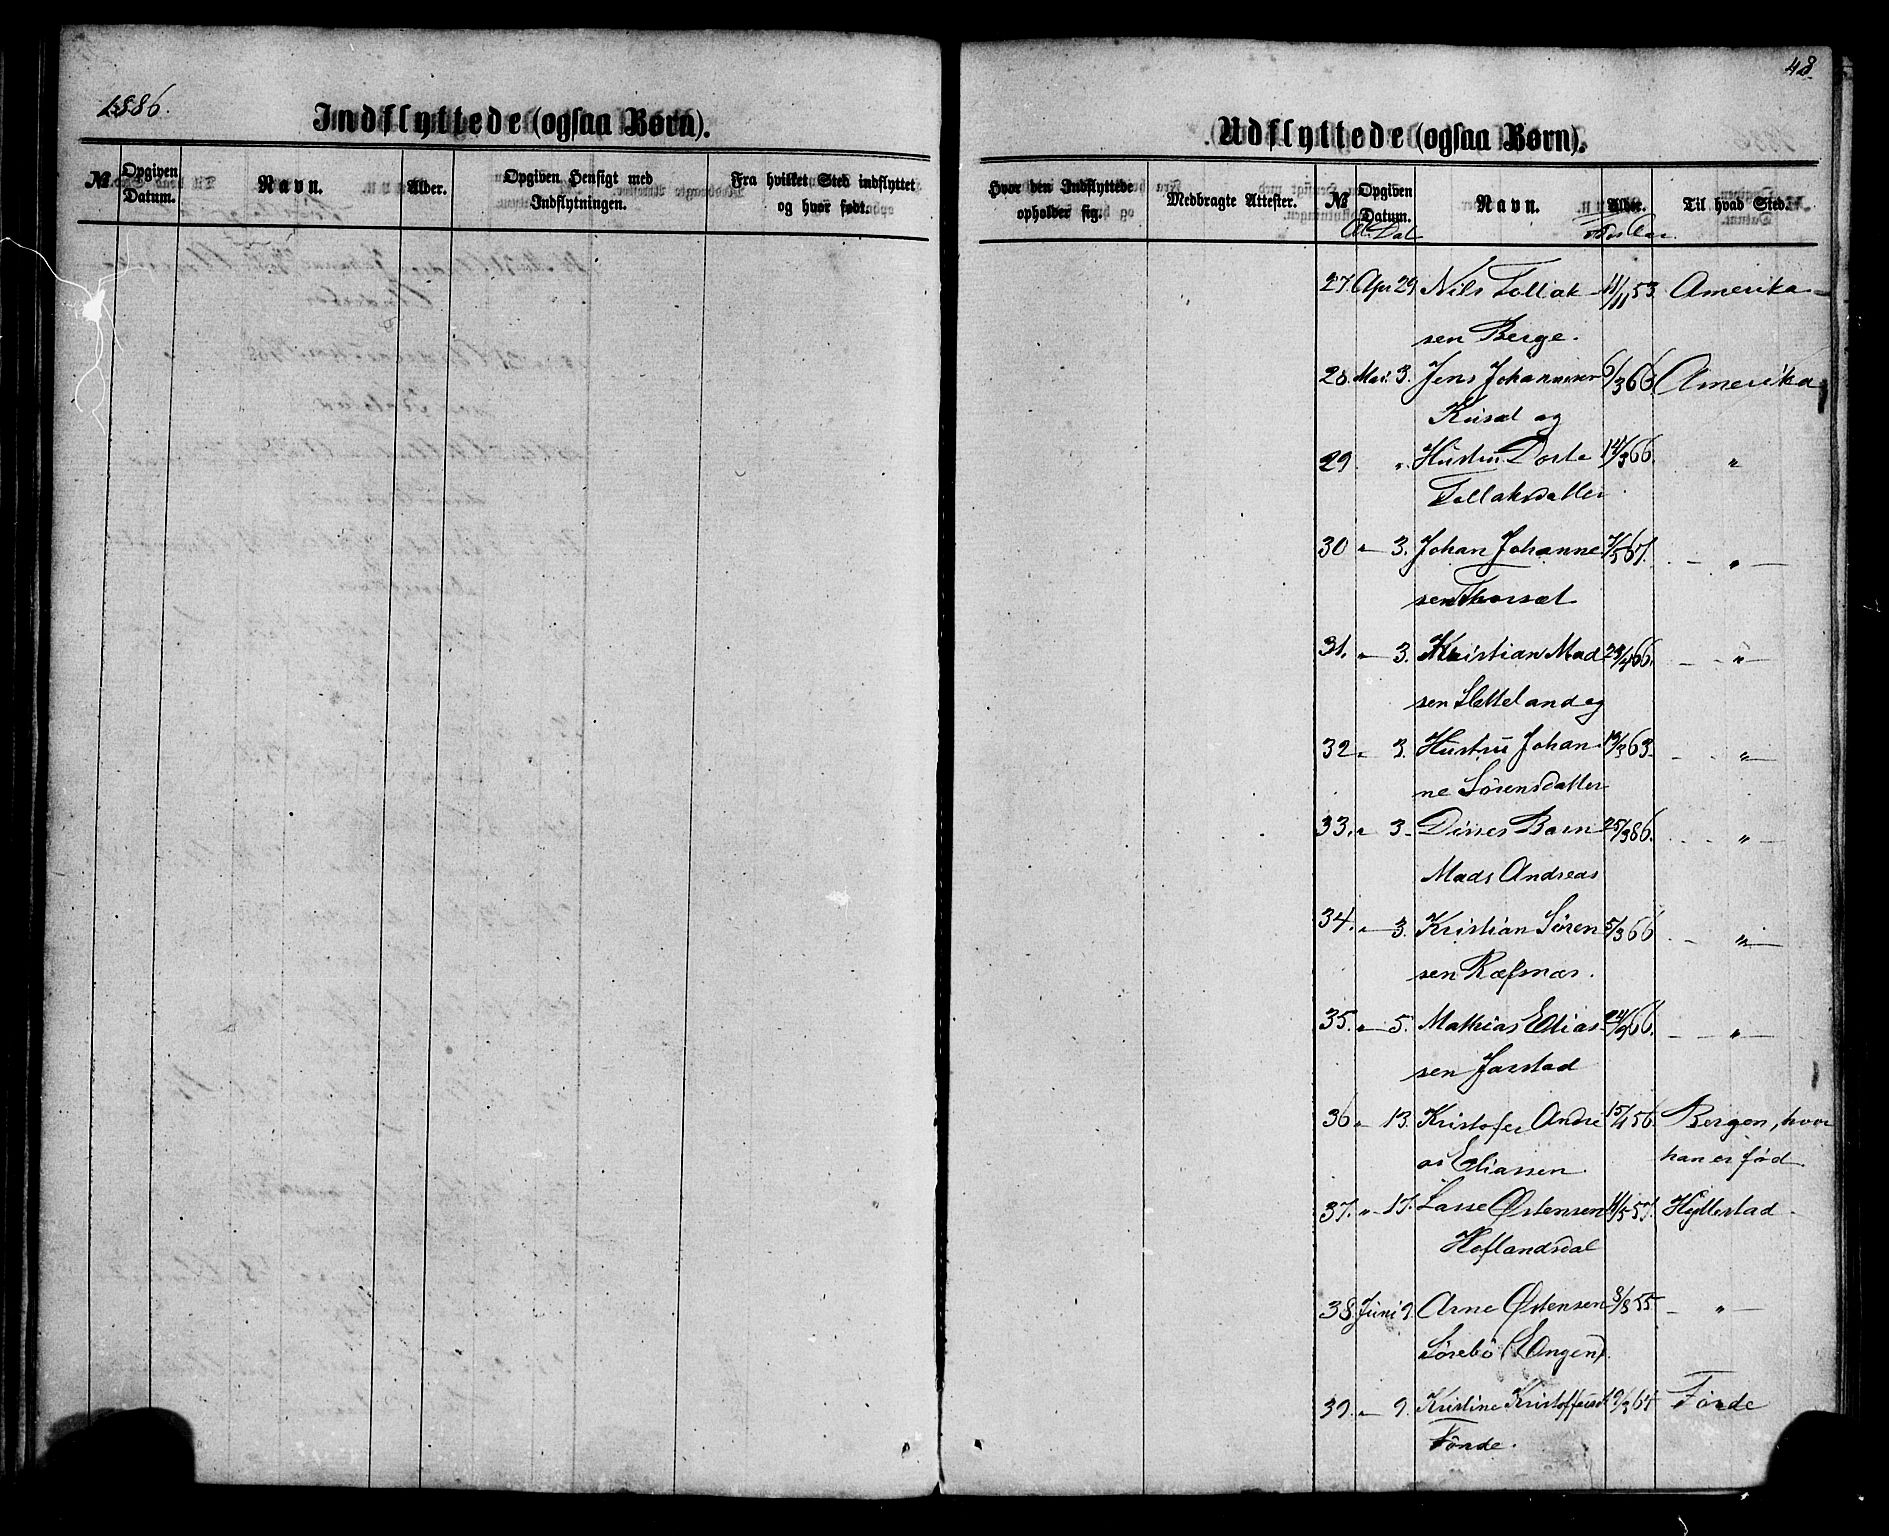 1886.
Indflyttede (ogsaa Børn).
№ Opgiven Datum. Navn. Alder. Opgiven Hensigt med Indflytningen. Fra hvilket Sted indflyttet og hvor født.
48.
Udflyttede (ogsaa Børn).
Hvor den Indflyttede opholder sig. Medbragte Attester. № Opgiven Datum. Navn. Alder. Til hvad Sted.
27. Apr 29 Nils Tollak- 11/11 53. Amerika
sen Berge.
28. Mai 3. Jens Johannesen 6/3 66. Amerika
og
29 " Hustru Dorte 14/3 66. "
Tollaksdatter.
30 " 3. Johan Johanne 7/5 67. "
sen Thorsæt
31. " 3. Kristian Mad 28/4 66. "
sen Sletteland og
32 " 3. Hustru Johan- 63. "
ne Sørensdatter
33. " 3. Disses Barn 25/3 86. "
Mads Andreas
34. " 3. Kristian Søren 5/3 66 "
sen Ræfsnæs.
35. " 5. Mathias Elias 24/9 66. "
sen Jarstad
36 " 13. Kristofer Andre 15/4 56. Bergen, hvor
as Eliassen han er fød.
37. " 17. Lasse Østensen 11/5 57. Hyllestad
Hoflandsdal
38. Juni 9. Arne Østensen 8/8 55 "
Sørebö (Engen).
39. " 9. Kristine Kristoffersd 19/3 64 Førde
Förde.